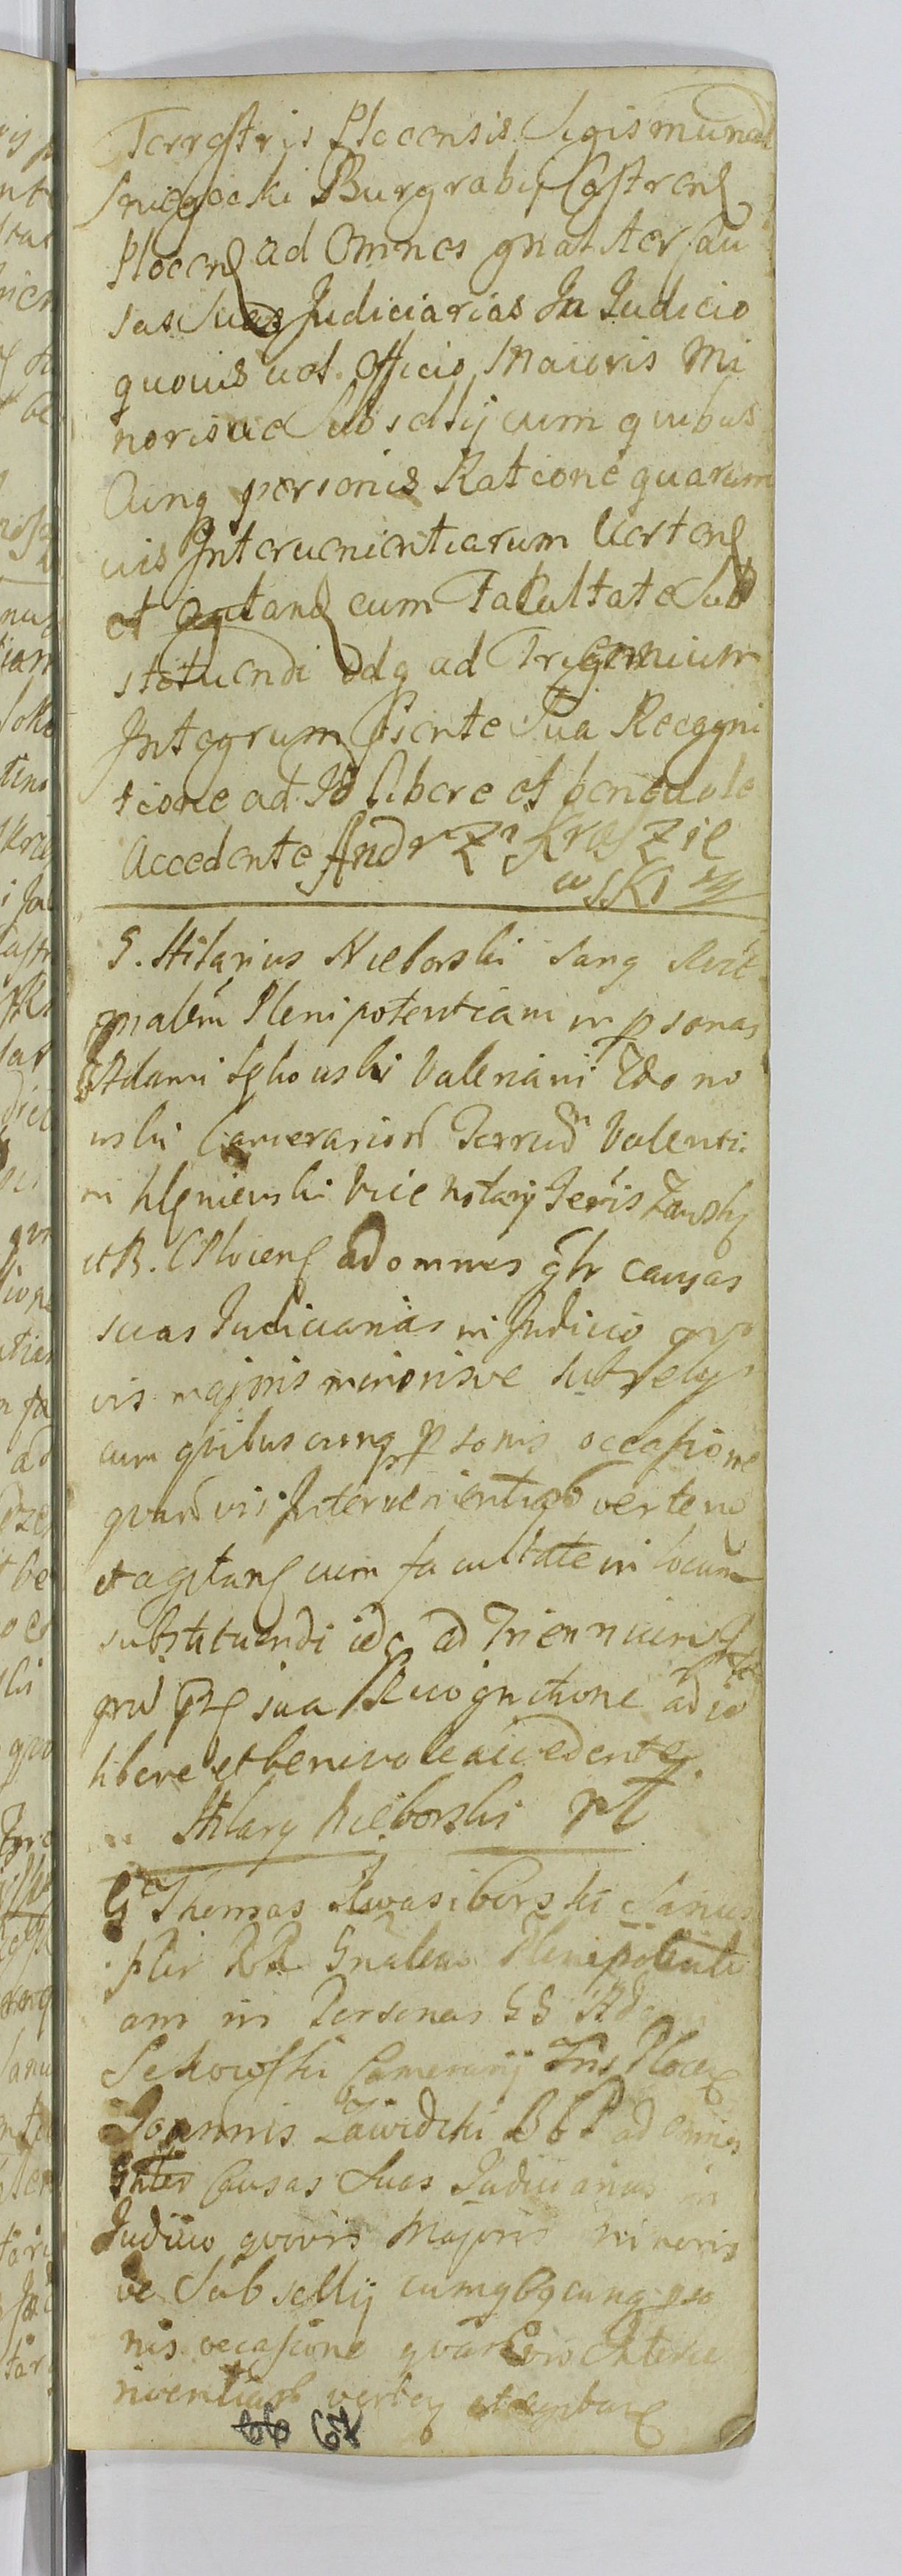 Terrestris Plocensis Sigismundi
Sniegocki Burgrabij Castren
Plocen ad Omnes gnaliter Cau
sas Suas Judiciarias In Judicio
quouis uel Officio Maioris Mi
norisue Subsellij cum quibus
Cunq personis Ratione quarum
uis Interuenientiarum Uerten
et agitan cum Facultate Sub
stituendi Idq ad Triennium
Integrum psiente Sua Recogni
tione ad Id libere et beneuole
Accedente Andrzy Kraszie
wski
G. Hilarius Nieborski Sang
gnalem Plenipotentiam in psonas
Adami Sękowski Valeriani Zdo no
wski Camerariorũ Valenti
ni Klęniewski Vice Notarij Terris Zawsk
et B. C Plocens ad omnes glr causas
suas Judiciarias in Judicio quo
vis majoris minorisve Subselij
cum quibuscunq psonis occasione
quarũvis Intervenientiarũ verten
et agitan cum facultate in locum
substituendi idq ad Triennium Inte
grũ sua Recognitione ad id
libere et benevole accedente.
Hilary Nieborski
G Thomas Kwasiborski Sanus
Gnalem Plenipotenti
am in Personas GG Ada
Sekowski Camerarij Tris Plocen
Joannis Zawidzki B C P ad omnes
Gnlter Causas Suas Judiciarias in
Judicio quovis Majoris Minoris
ve Subsellij cumqbqcunq pso
nis occasione quarũvis Interve
nientiarũ verten et agitan
66 67